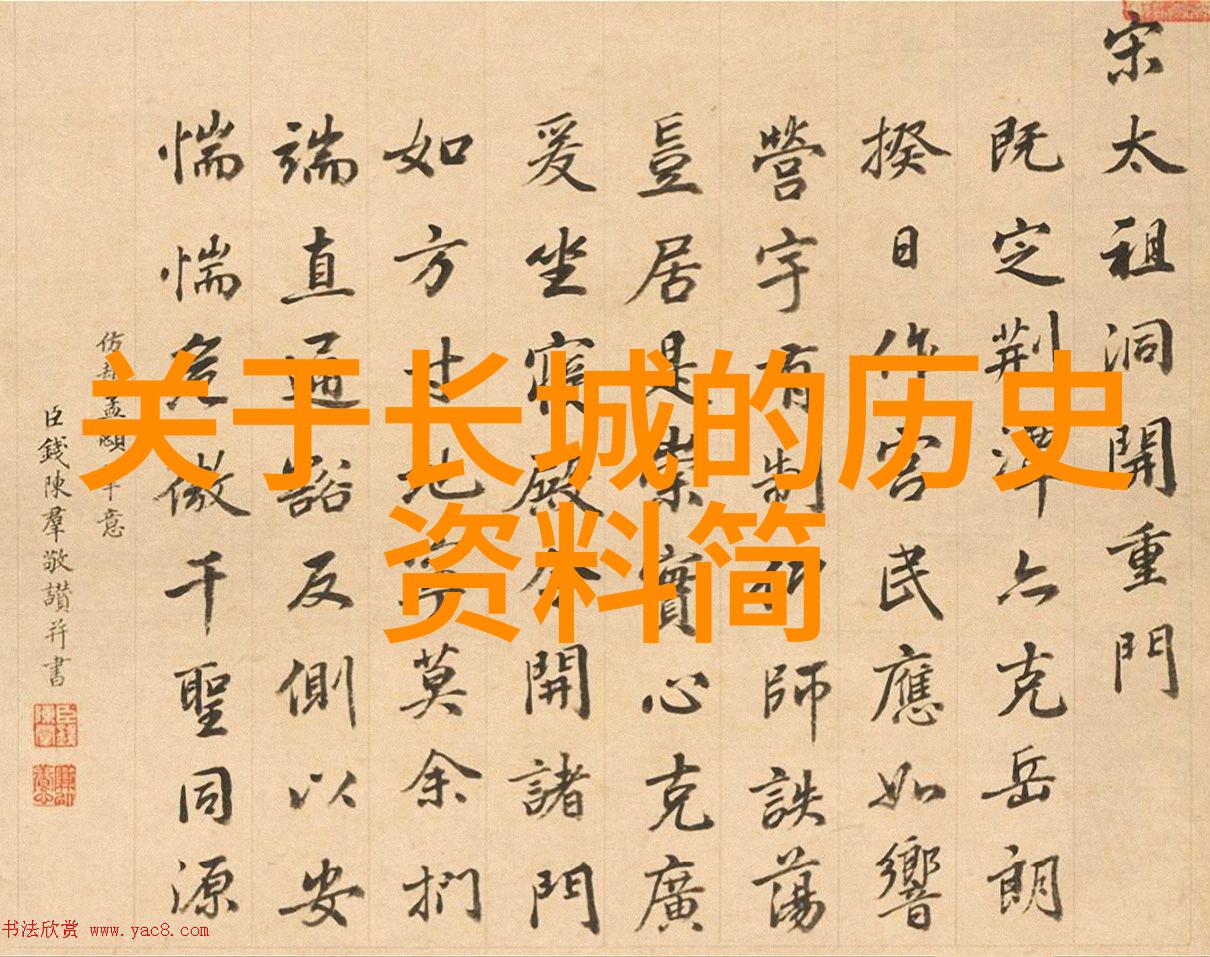 宋太祖洞開重門
既定荆潭亦克岳朗
揆日作宫民應如響
營宇有制仰師詄蕩
豈居是崇實心克廣
爰坐寢殿令開諸門
如方寸地莫余捫
端直通豁反側以安
惴惴危微千聖同源
仿趙孟頫筆意
臣錢陳羣敬讃并書
关于长城的历史
资料简
书法欣赏 www.yac8.com